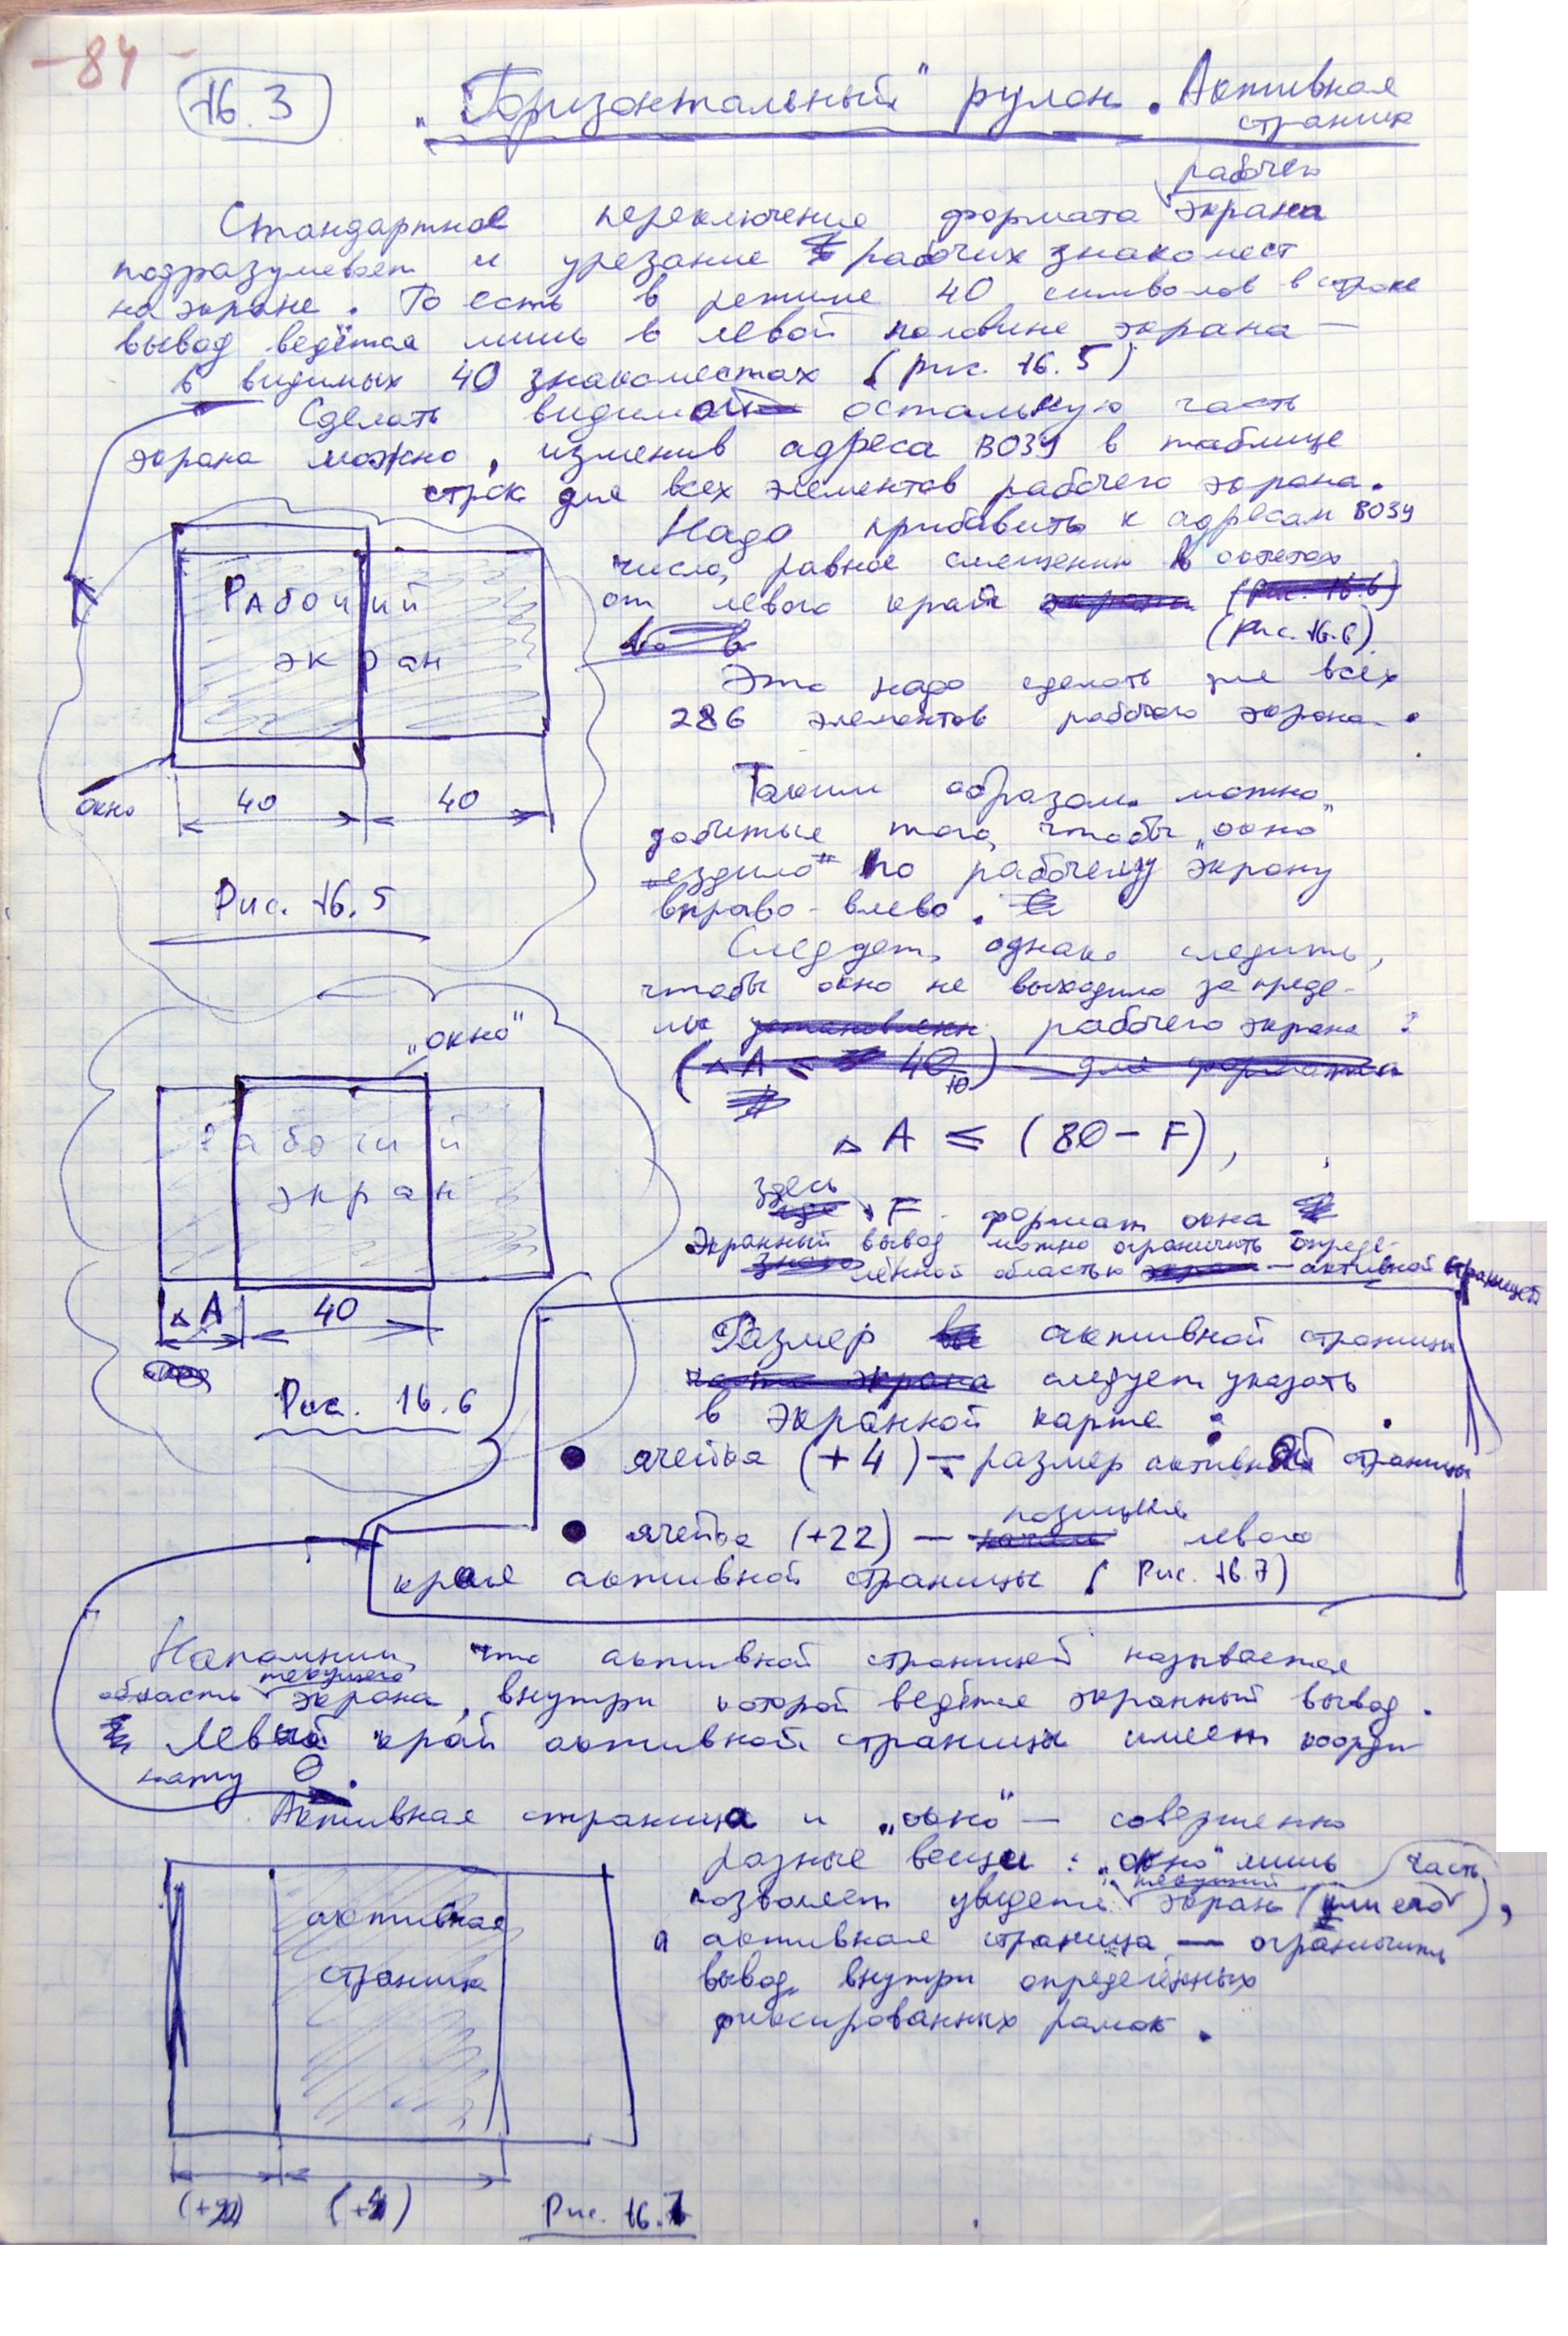 -84-
16.3 „Горизонтальный“ рулон. Активная
страница
рабочего
Стандартное переключение формата экрана
подразумевает и урезание рабочих знакомест
на экране. То есть в режиме 40 символов в строке
вывод ведётся лишь в левой половине экрана —
в видимых 40 знакоместах (рис. 16.5)
Сделать видимой остальную часть
экрана можно, изменив адреса ВОЗУ в таблице
строк для всех элементов рабочего экрана.
Надо прибавить к адресам ВОЗУ
число, равное смещению в октетах
от левого края экрана (рис. 16.6)
(рис. 16.6)
Это надо сделать для всех
286 элементов рабочего экрана.
Рабочий
экран
окно
40 40
Рис. 16.5
Таким образом можно
добиться того, чтобы „окно“
„ездило“ по рабочему экрану
вправо-влево.
Следует, однако следить,
чтобы окно не выходило за преде-
лы установленн рабочего экрана:
(△A ≤ 40₁₀) для формата
△A ≤ (80 - F),
здесь
где F - формат окна
Экранный вывод можно ограничить опреде-
лённой областью экрана — активной страницей
„окно“
Рабочий
экран
△A 40
Рис. 16.6
Размер активной страницы
части экрана следует указать
в экранной карте:
• ячейка (+4) — размер активной страницы
позиция
• ячейка (+22) — начало левого
края активной страницы (Рис. 16.7)
Напомним, что активной страницей называется
текущего
область экрана, внутри которой ведётся экранный вывод.
Левый край активной страницы имеет коорди-
нату 0.
Активная страница и „окно“ — совершенно
разные вещи: „окно“ лишь
текущий часть
позволяет увидеть экран (или его),
а активная страница — ограничить
вывод внутри определённых
фиксированных рамок.
активная
страница
(+22) (+4) Рис. 16.7